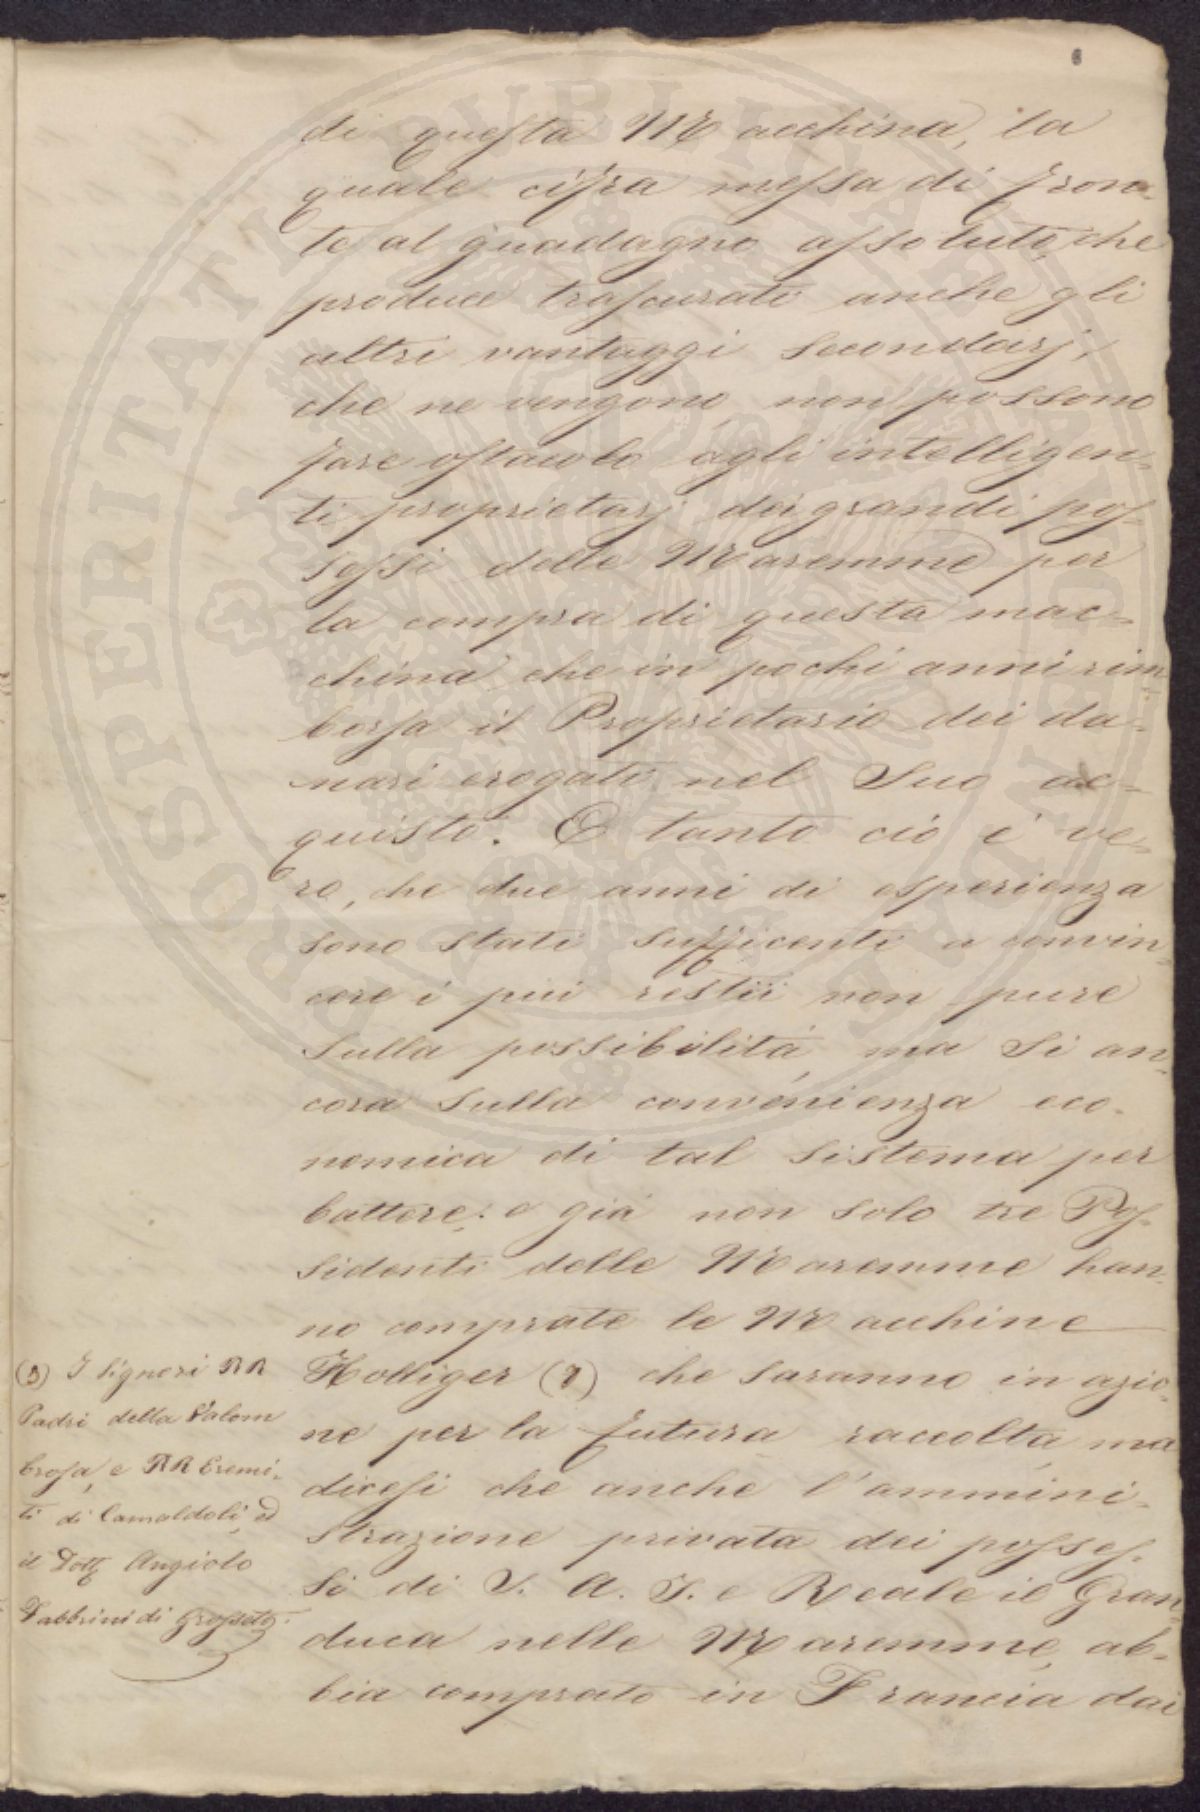 di questa Macchina, la
quale cifra messa di fron-
te al guadagno assoluto, che
produce trascurati anche gli
altri vantaggi secondarj,
che ne vengono, non possono
fare ostacolo agli intelligen-
ti proprietarj dei grandi pos-
sessi delle Maremme per
la compra di questa mac-
china che in pochi anni rim-
borsa il Proprietario dei da-
nari erogati nel Suo ac-
quisto. E tanto ciò è ve-
ro, che due anni di esperienza
sono stati sufficenti a convin-
cere i più restii non pure
Sulla possibilità, ma Si an-
cora Sulla convenienza eco-
nomica di tal Sistema per
battere; e già non Solo tre Pos-
sidenti delle Maremme han-
no comprate le Macchine
Hottiger (3) che Saranno in azio-
ne per la futura raccolta, ma
dicesi che anche l'ammini-
strazione privata dei posses-
si di S. A. I. e Reale il Gran-
duca nelle Maremme, ab-
bia comprato in Francia dai
(3) I Signori RR
Padri della Valom
brosa, e RR Eremi-
ti di Camaldoli, ed
il Dott Angiolo
Fabbrini di Grosseto.
PROSPERITATI PUBLICAE AUGENDAE